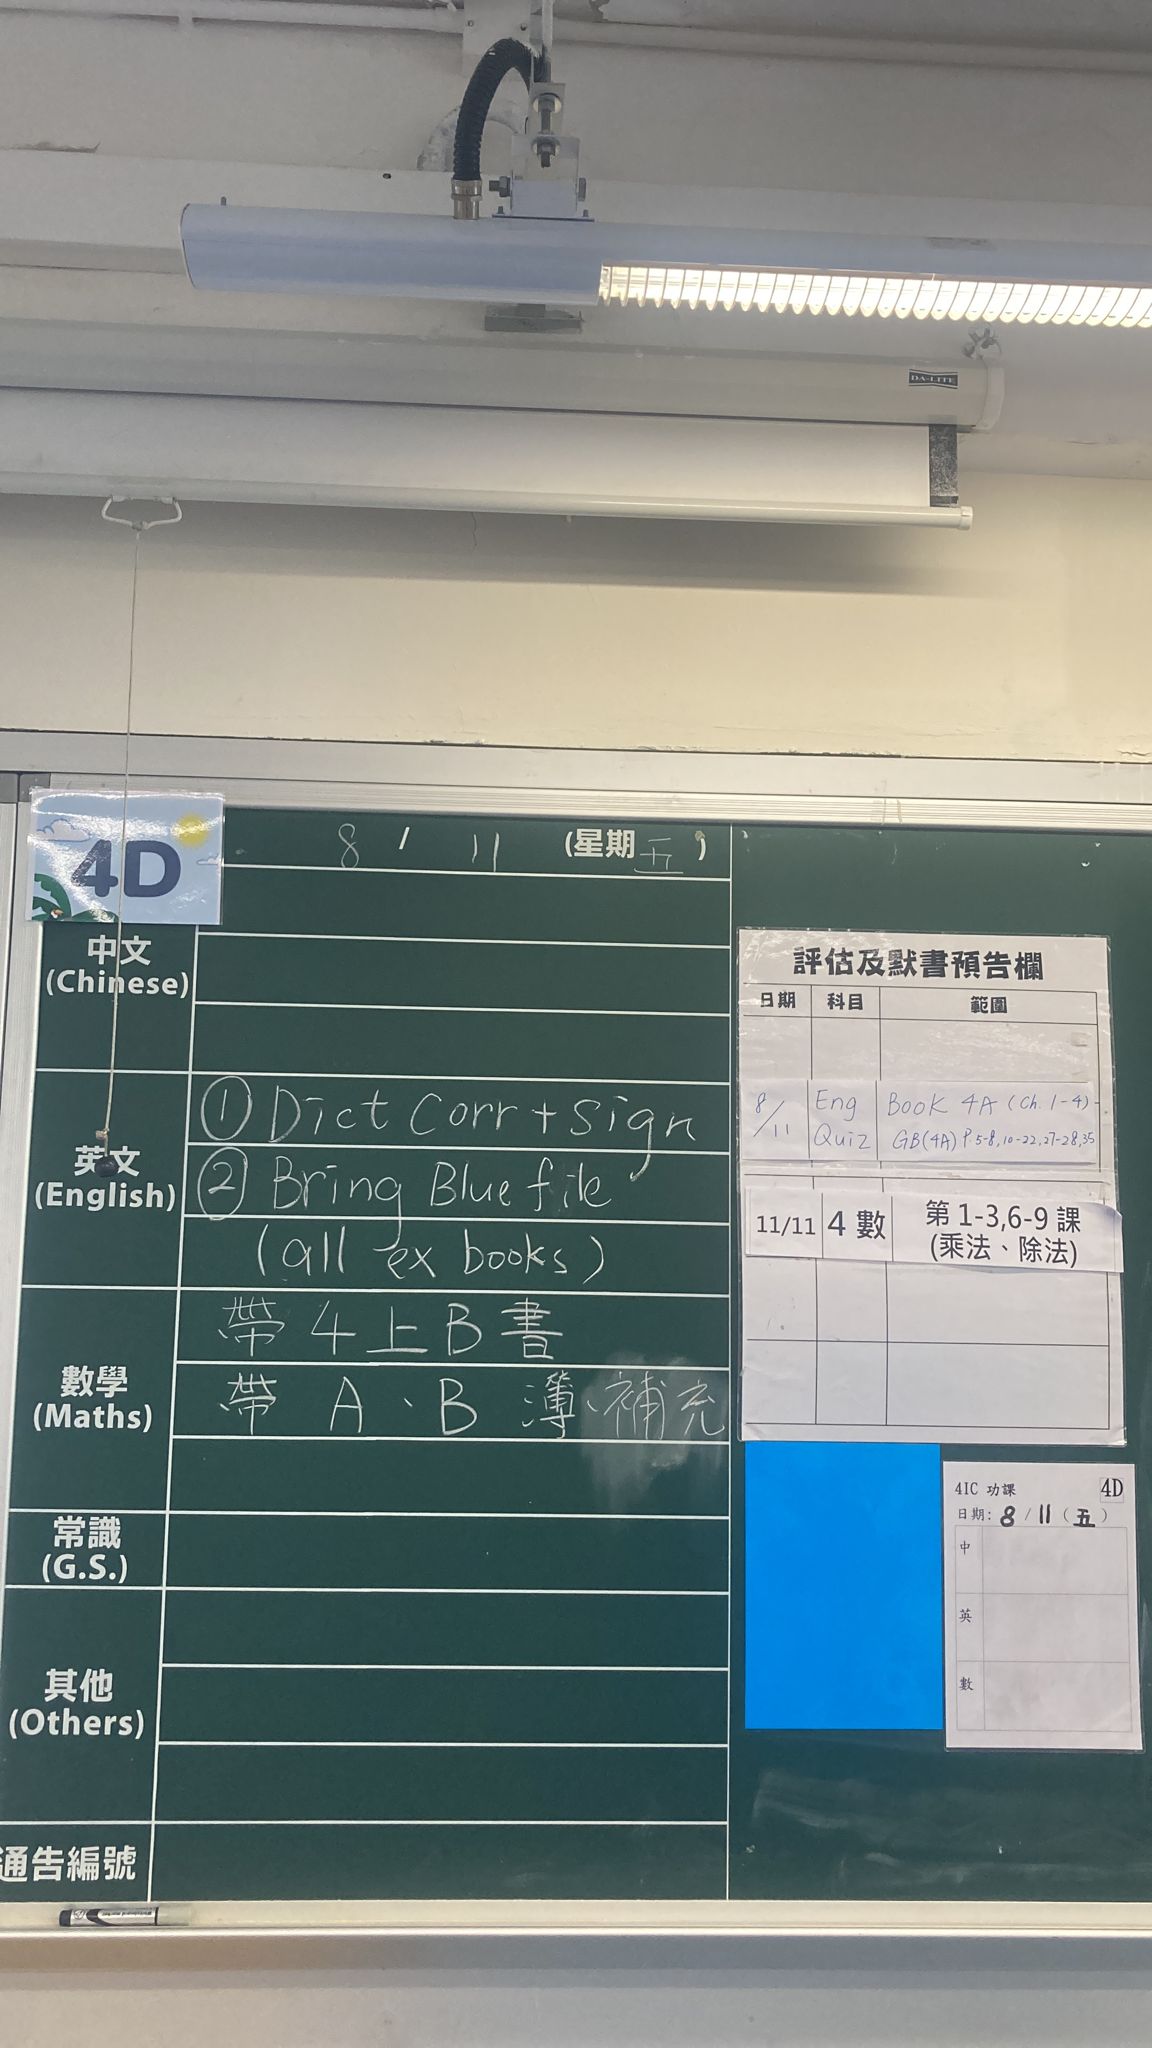 DA-LITE
4D
8 / 11 (星期五)
中文
(Chinese)
英文
(English)
① Dict Corr + Sign
② Bring Blue file
(all ex books)
數學
(Maths)
帶 4上B書
帶 A、B 簿、補充
常識
(G.S.)
其他
(Others)
通告編號
評估及默書預告欄
日期 科目 範圍
8/11 Eng Quiz Book 4A (Ch. 1-4)
GB(4A) P.5-8,10-22,27-28,35
11/11 4 數 第 1-3,6-9 課
(乘法、除法)
4IC 功課 4D
日期: 8 / 11 (五)
中
英
數